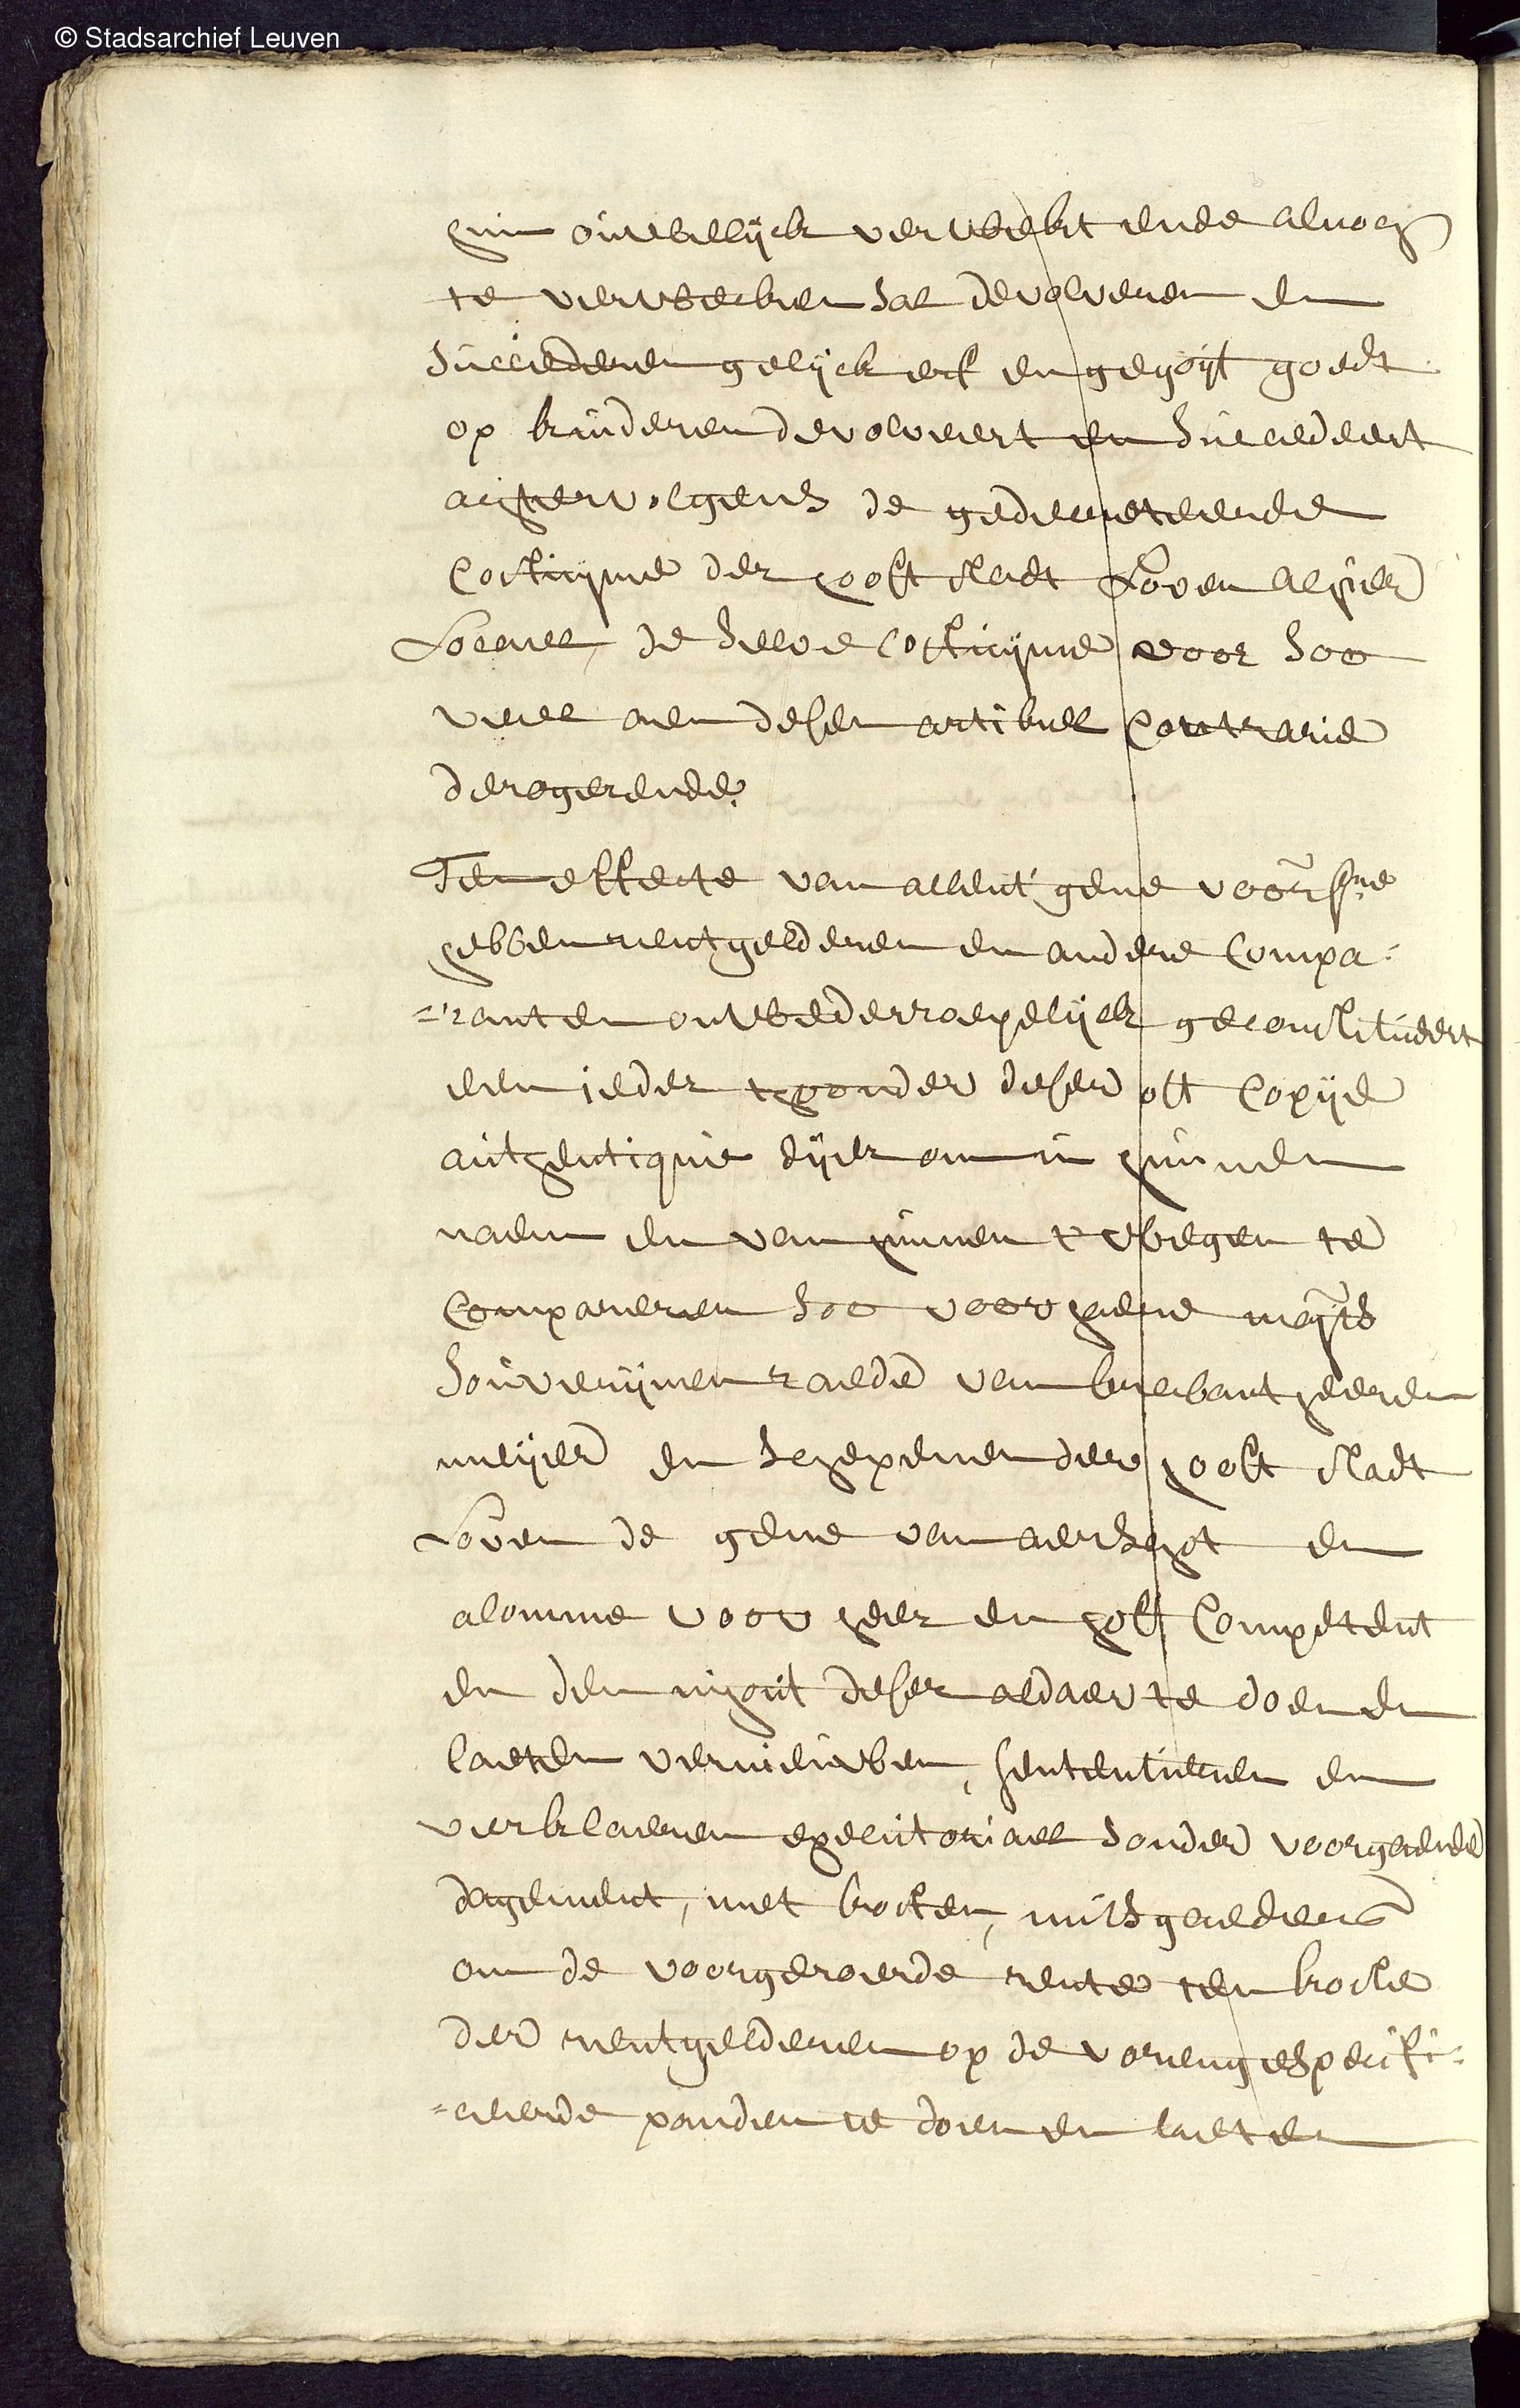 © Stadsarchief Leuven
hun houwelijck verweckt ende alnoch
te verwecken sal devolveren en
succederen gelijck erf en gegoijt goedt
op kinderen devolveert en succedeert
achtervolgens de gedecreteerde
costuijme der hooft stadt Loven alhier
Locael, de selve costuijme voor soo
veel aen desen artikel contrarie
derogerende.
Ten effecte van allent' gene voors. soo
hebben rentgelderen en andere compa=
=ranten onwederroepelijck geconstitueert
een ieder thoonder deser oft copije
authentique dijer om in hunnen
naem en van hunnent wegen te
compareren soo voor haere mats.
souverijnen raede van brabant heeren
meijer en schepenen der hooft stadt
Loven de gene van aerschot en
alomme voor heer en hoff competent
en den inhout deser aldaer te doen en
laeten vernieuwen, sententieren en
verklaeren executoriael sonder voorgaende
dagement, met kosten, mitsgaeders
om de voorgeroerde rente ten koste
der rentgelderen op de vorengespecifi=
=ceerde panden te doen en laeten